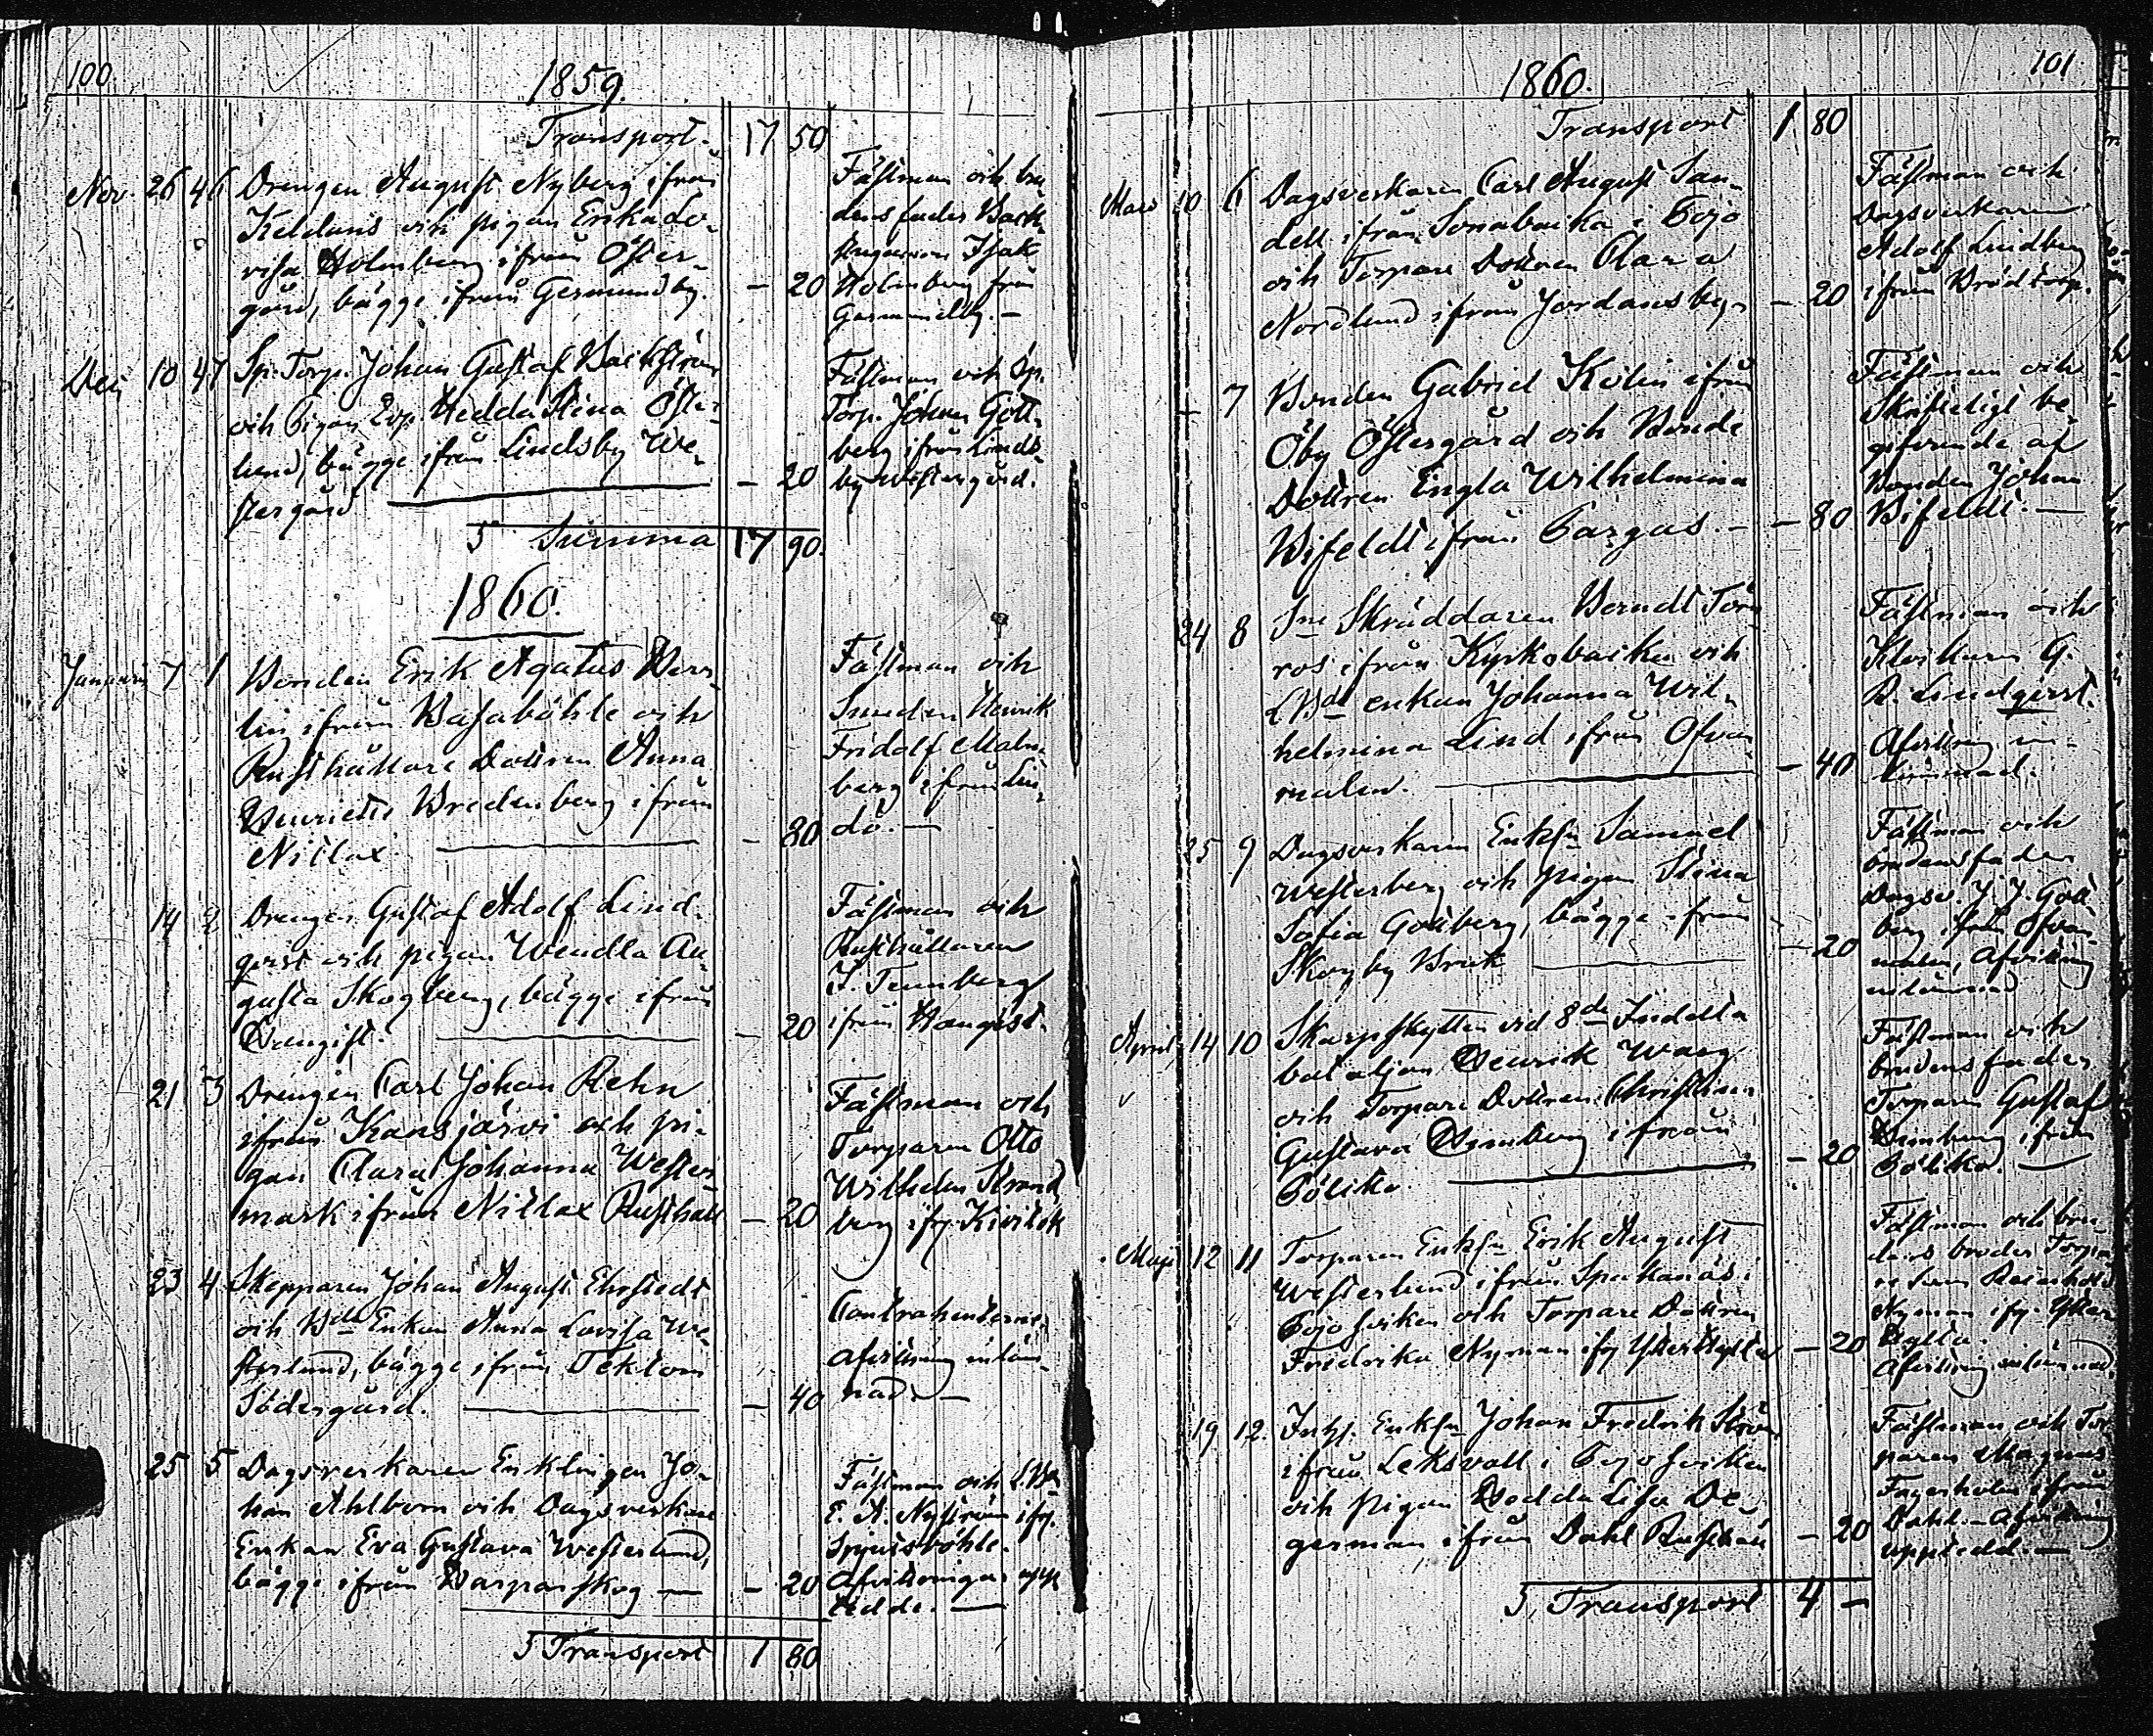 100.
1859.
Transport. 17 50
Nov. 26 46 Drengen August Nyberg ifrån
och pigan Erika Lo-
visa Holmberg ifrån Öster-
gård, bägge ifrån Germundby. - 20
Fästman och bru
dens fader Back-
Isak
Holmberg från
Germundby. -
Dec 10 47 Sp. Torp. Johan Gustaf Backström
och Pigan Hedda Stina Öster-
lund, bägge ifrån Lindsby We-
stergård - 20
Fästman och Sp.
Torp. Johan Gott-
berg ifrån Linds-
by Westergård.
Summa 17 90.
1860.
Januari 7 1 Bonden Erik Agatus
lin ifrån Wasaböhle och
Rusthållare Dottren Anna
Henriette Bredenberg ifrån
Nillax - 80
Fästman och
Smeden Henrik
Fridolf Malm-
berg ifrån Lin-
dö. -
14 2 Drengen Gustaf Adolf Lind-
qvist och pigan Wendla Au-
gusta Skogberg, bägge ifrån
- 20
Fästman och
Rusthållaren
J. Tennberg
ifrån
21 3 Drengen Carl Johan Rehn
ifrån Kansjärvi och pi-
gan Clara Johanna Wester-
mark ifrån Nillax Rusthåll - 20
Fästman och
Torparen Otto
Wilhelm Strand-
berg ifr.
23 4 Skepparen Johan August Ehrstedt
och Bde Enkan Anna Lovisa We-
sterlund, bägge ifrån Tektom
Södergård. - 40
Contrahenterne,
Afvittring inläm-
nad. -
25 5 Dagsverkaren Enklingen Jo-
han Ahlbom och Dagsverkare
Enkan Eva Gustava Westerlund,
bägge ifrån - 20
Fästman och
E. A. Nyström ifr.
Afvittringar upp
tedde. -
Transport 1 80
101
1860.
Transport 1 80
Mars 10 6 Dagsverkaren Carl August San-
dell ifrån Sonabacka i Pojo
och Torpare Dottren Clara
Nordlund ifrån Jordansby - 20
Fästman och
Dagsverkaren
Adolf Lindberg
ifrån Brödtorp.
- 7 Bonden Gabriel Kolin ifrån
Öby Östergård och Bonde
Dottren Engla Wilhelmina
Bifeldt ifrån Pargas. - - 80
Fästman och
Skriftligt be-
gifvande af
Bonden Johan
Bifeldt. -
24 8 Sne Skräddaren Berndt Törn
ros ifrån Kyrkobacka och
enkan Johanna Wil-
helmina Lind ifrån Ofvan-
malm. - 40
Fästman och
Klockaren G.
R. Lindqvist.
Afvittring in-
lämnad.
25 9 Dagsverkaren Enkln Samuel
Westerberg och pigan Stina
Sofia Gottberg, bägge ifrån
Skogby Bruk - 20
Fästman och
brudens fader
Dagsv. J. J. Gott
berg ifrån Ofvan-
malm, Afvittring
inlämnad
April 14 10 Skarpskytten vid 8de Indelta
bataljon Henrik Warg
och Torpare Dottren Christina
Gustava ifrån
- 20
Fästman och
brudens fader
Torparen Gustaf
ifrån
Maji 12 11 Torparen Enkln Erik August
Westerlund ifrån
Pojo socken och Torpare Dottren
Fredrika Nyman ifr - 20
Fästman och bru-
dens broder Torpa-
re Sonen Reinhold
Nyman ifr.
Afvittring inlämnad
19 12. Enkln Johan Fredrik Ström
ifrån Leksvall i Pojo socken
och pigan Hedda Lisa De-
german ifrån Dahl Rusthåll - 20
Fästman och Tor
paren Magnus
Fagerholm ifrån
Dahl. - Afvittring
upptedd. -
Transport 4 -